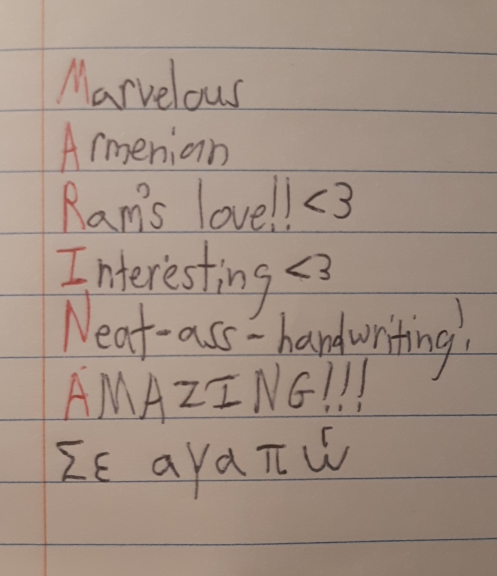 Marvelous
Armenian
Ram's love!! <3
Interesting <3
Neat-ass-handwriting!
AMAZING!!!
Σε αγαπώ